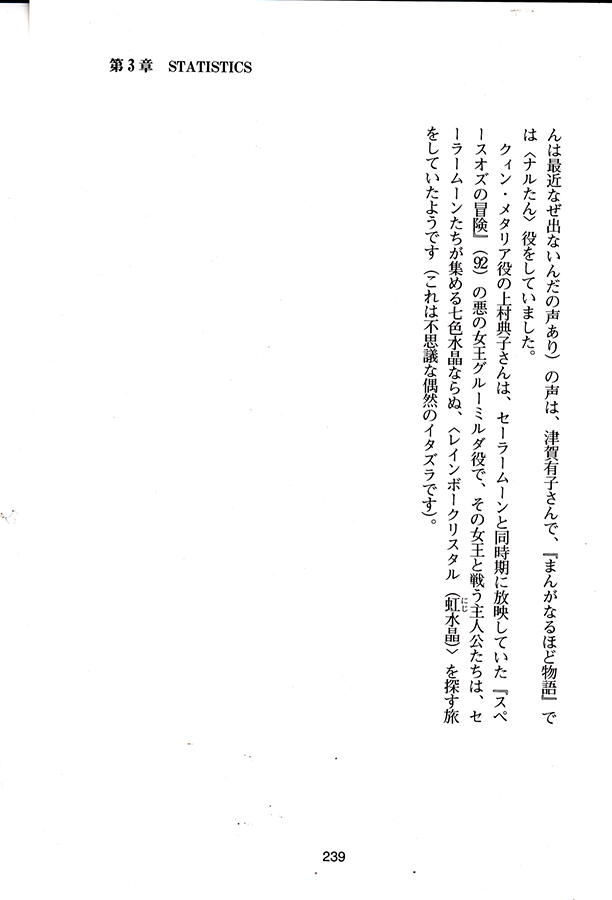 第3章　STATISTICS
んは最近なぜ出ないんだの声あり）の声は、津賀有子さんで、『まんがなるほど物語』で
は〈ナルたん〉役をしていました。
　クィン・メタリア役の上村典子さんは、セーラームーンと同時期に放映していた『スペ
ースオズの冒険』（92）の悪の女王グルーミルダ役で、その女王と戦う主人公たちは、セ
ーラームーンたちが集める七色水晶ならぬ、〈レインボークリスタル（虹水晶）〉を探す旅
にじ
をしていたようです（これは不思議な偶然のイタズラです）。
239